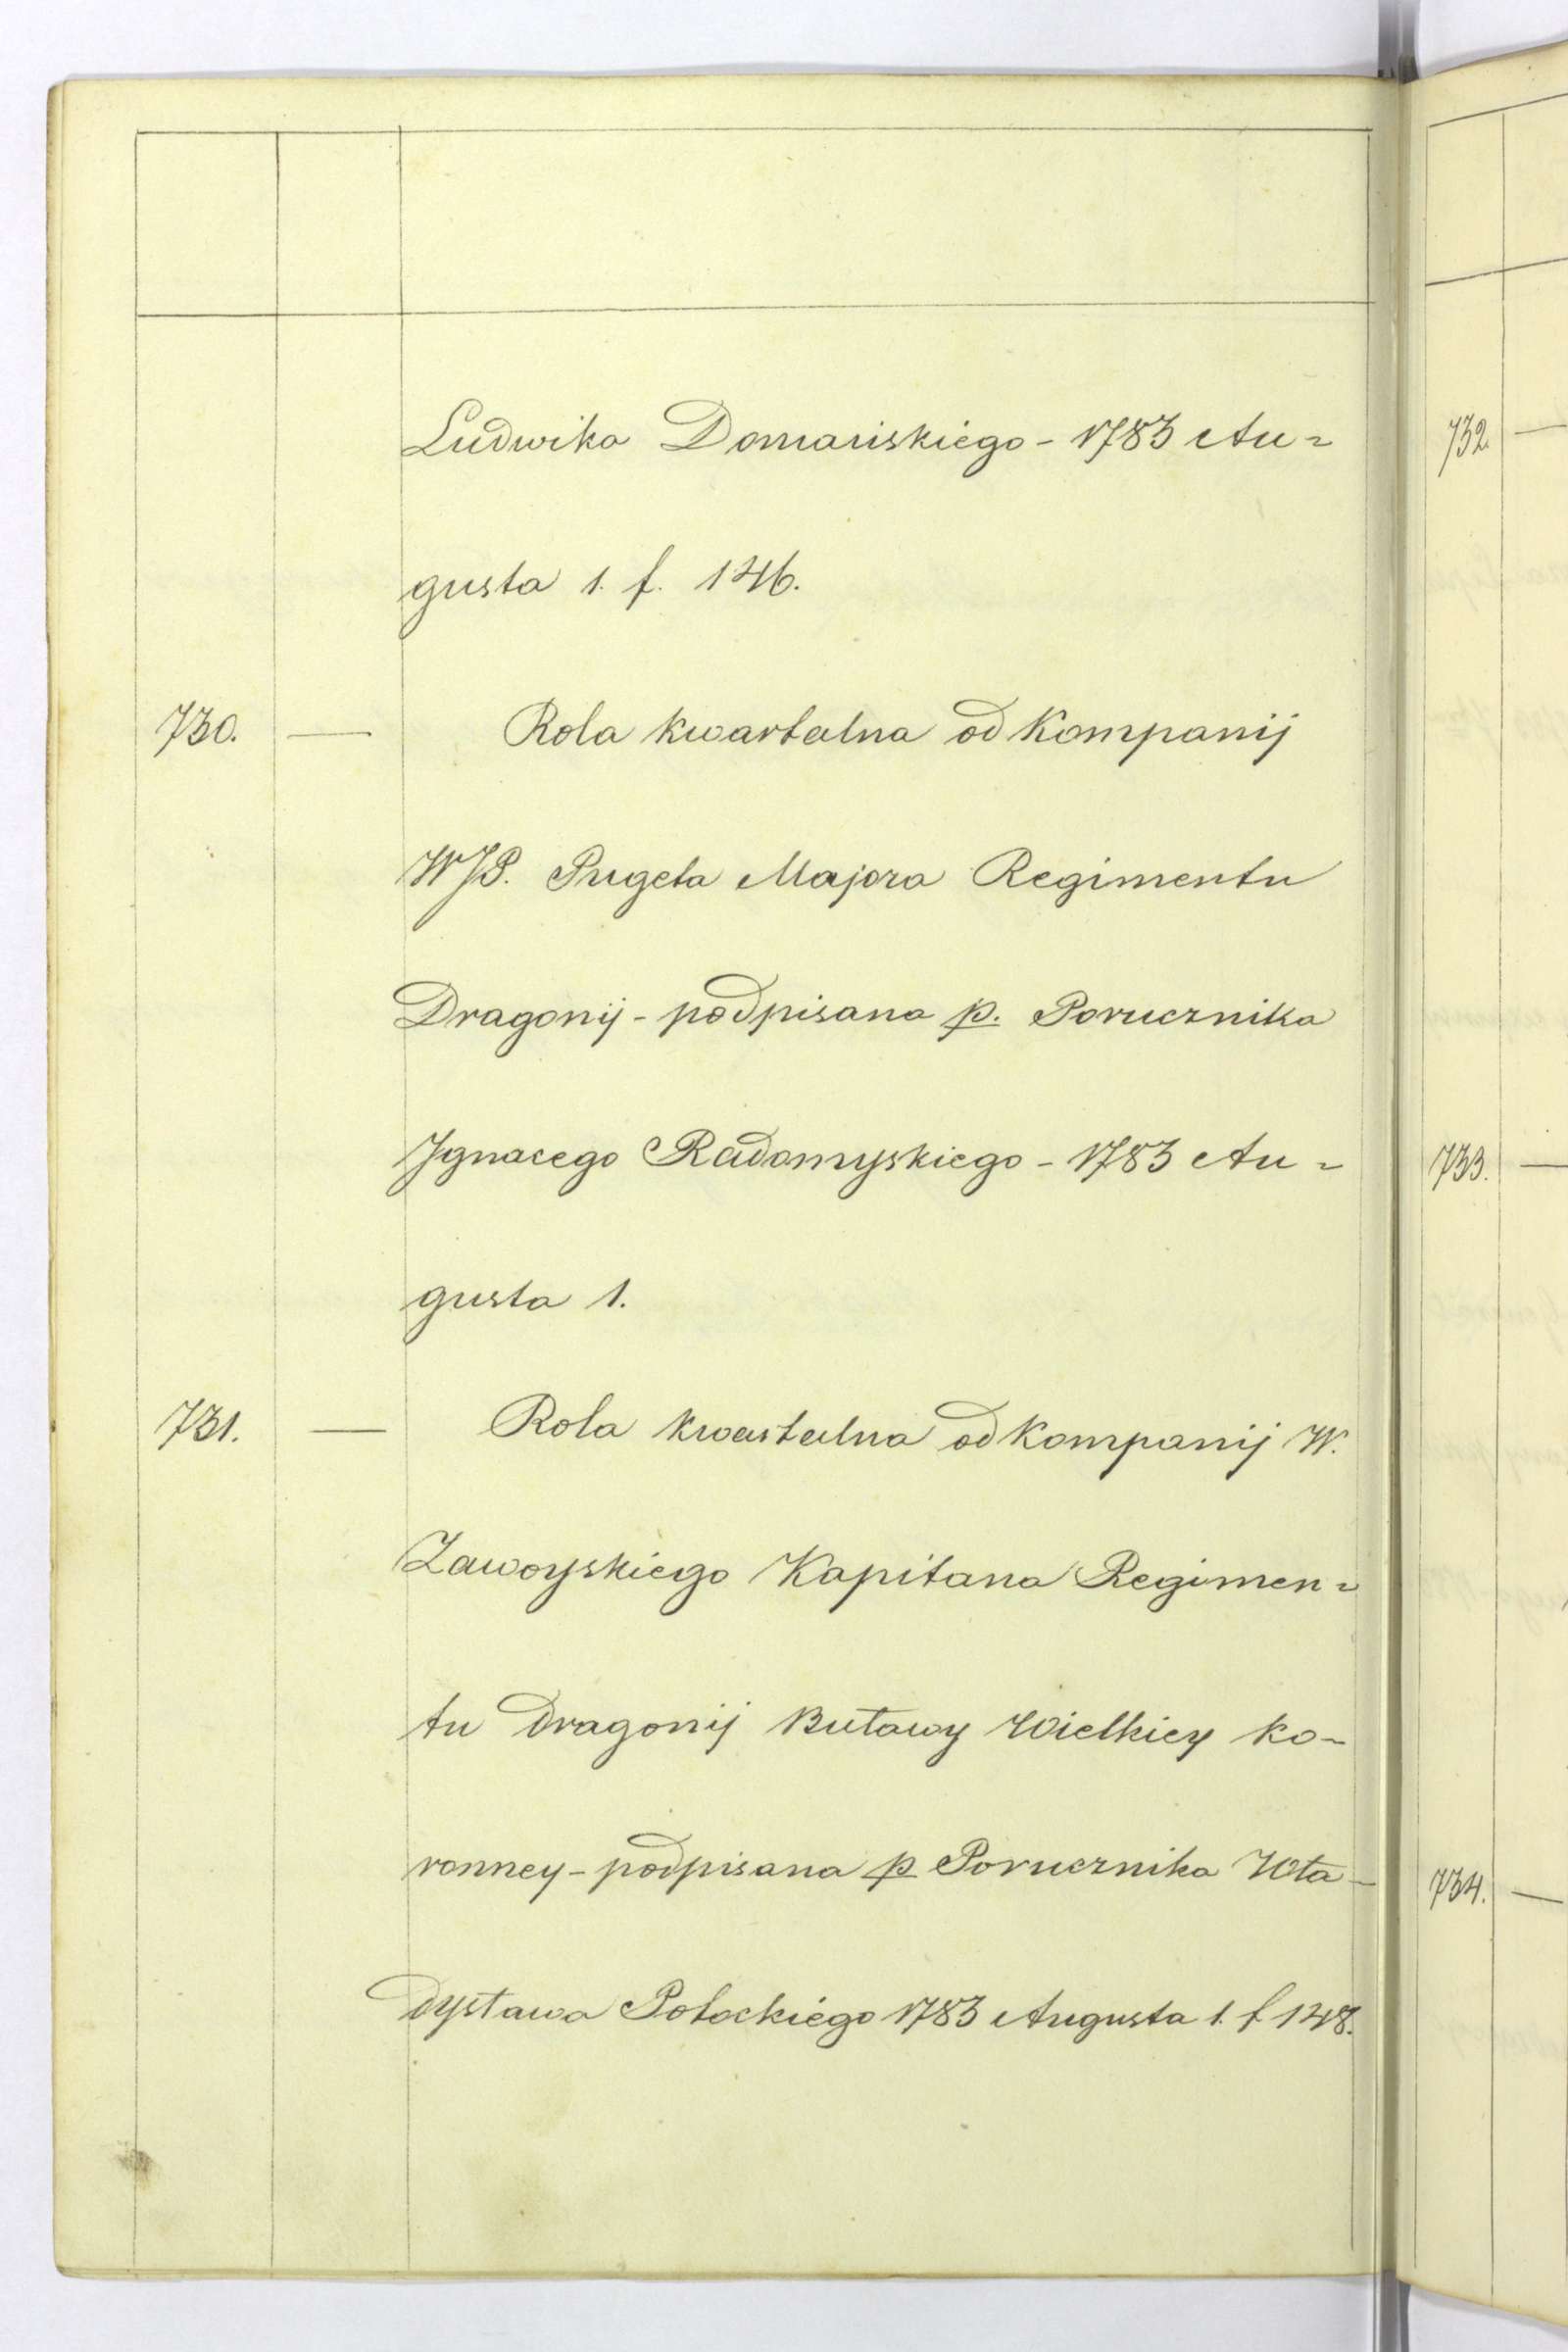 Ludwika Domańskiego - 1783 Au=
gusta 1. f. 146.
730. — Rola kwartalna od Kompanij
WJP. Pugeta Majora Regimentu
Dragonij - podpisana p. Porucznika
Jgnacego Radomyskiego - 1783 Au=
gusta 1.
731. — Rola kwartalna od Kompanij W.
Zawoyskiego Kapitana Regimen=
tu Dragonij Buławy Wielkiey ko-
ronney - podpisana p Porucznika Wła-
dysława Potockiego 1783 Augusta 1. f 148.
732. —
733. —
734. —